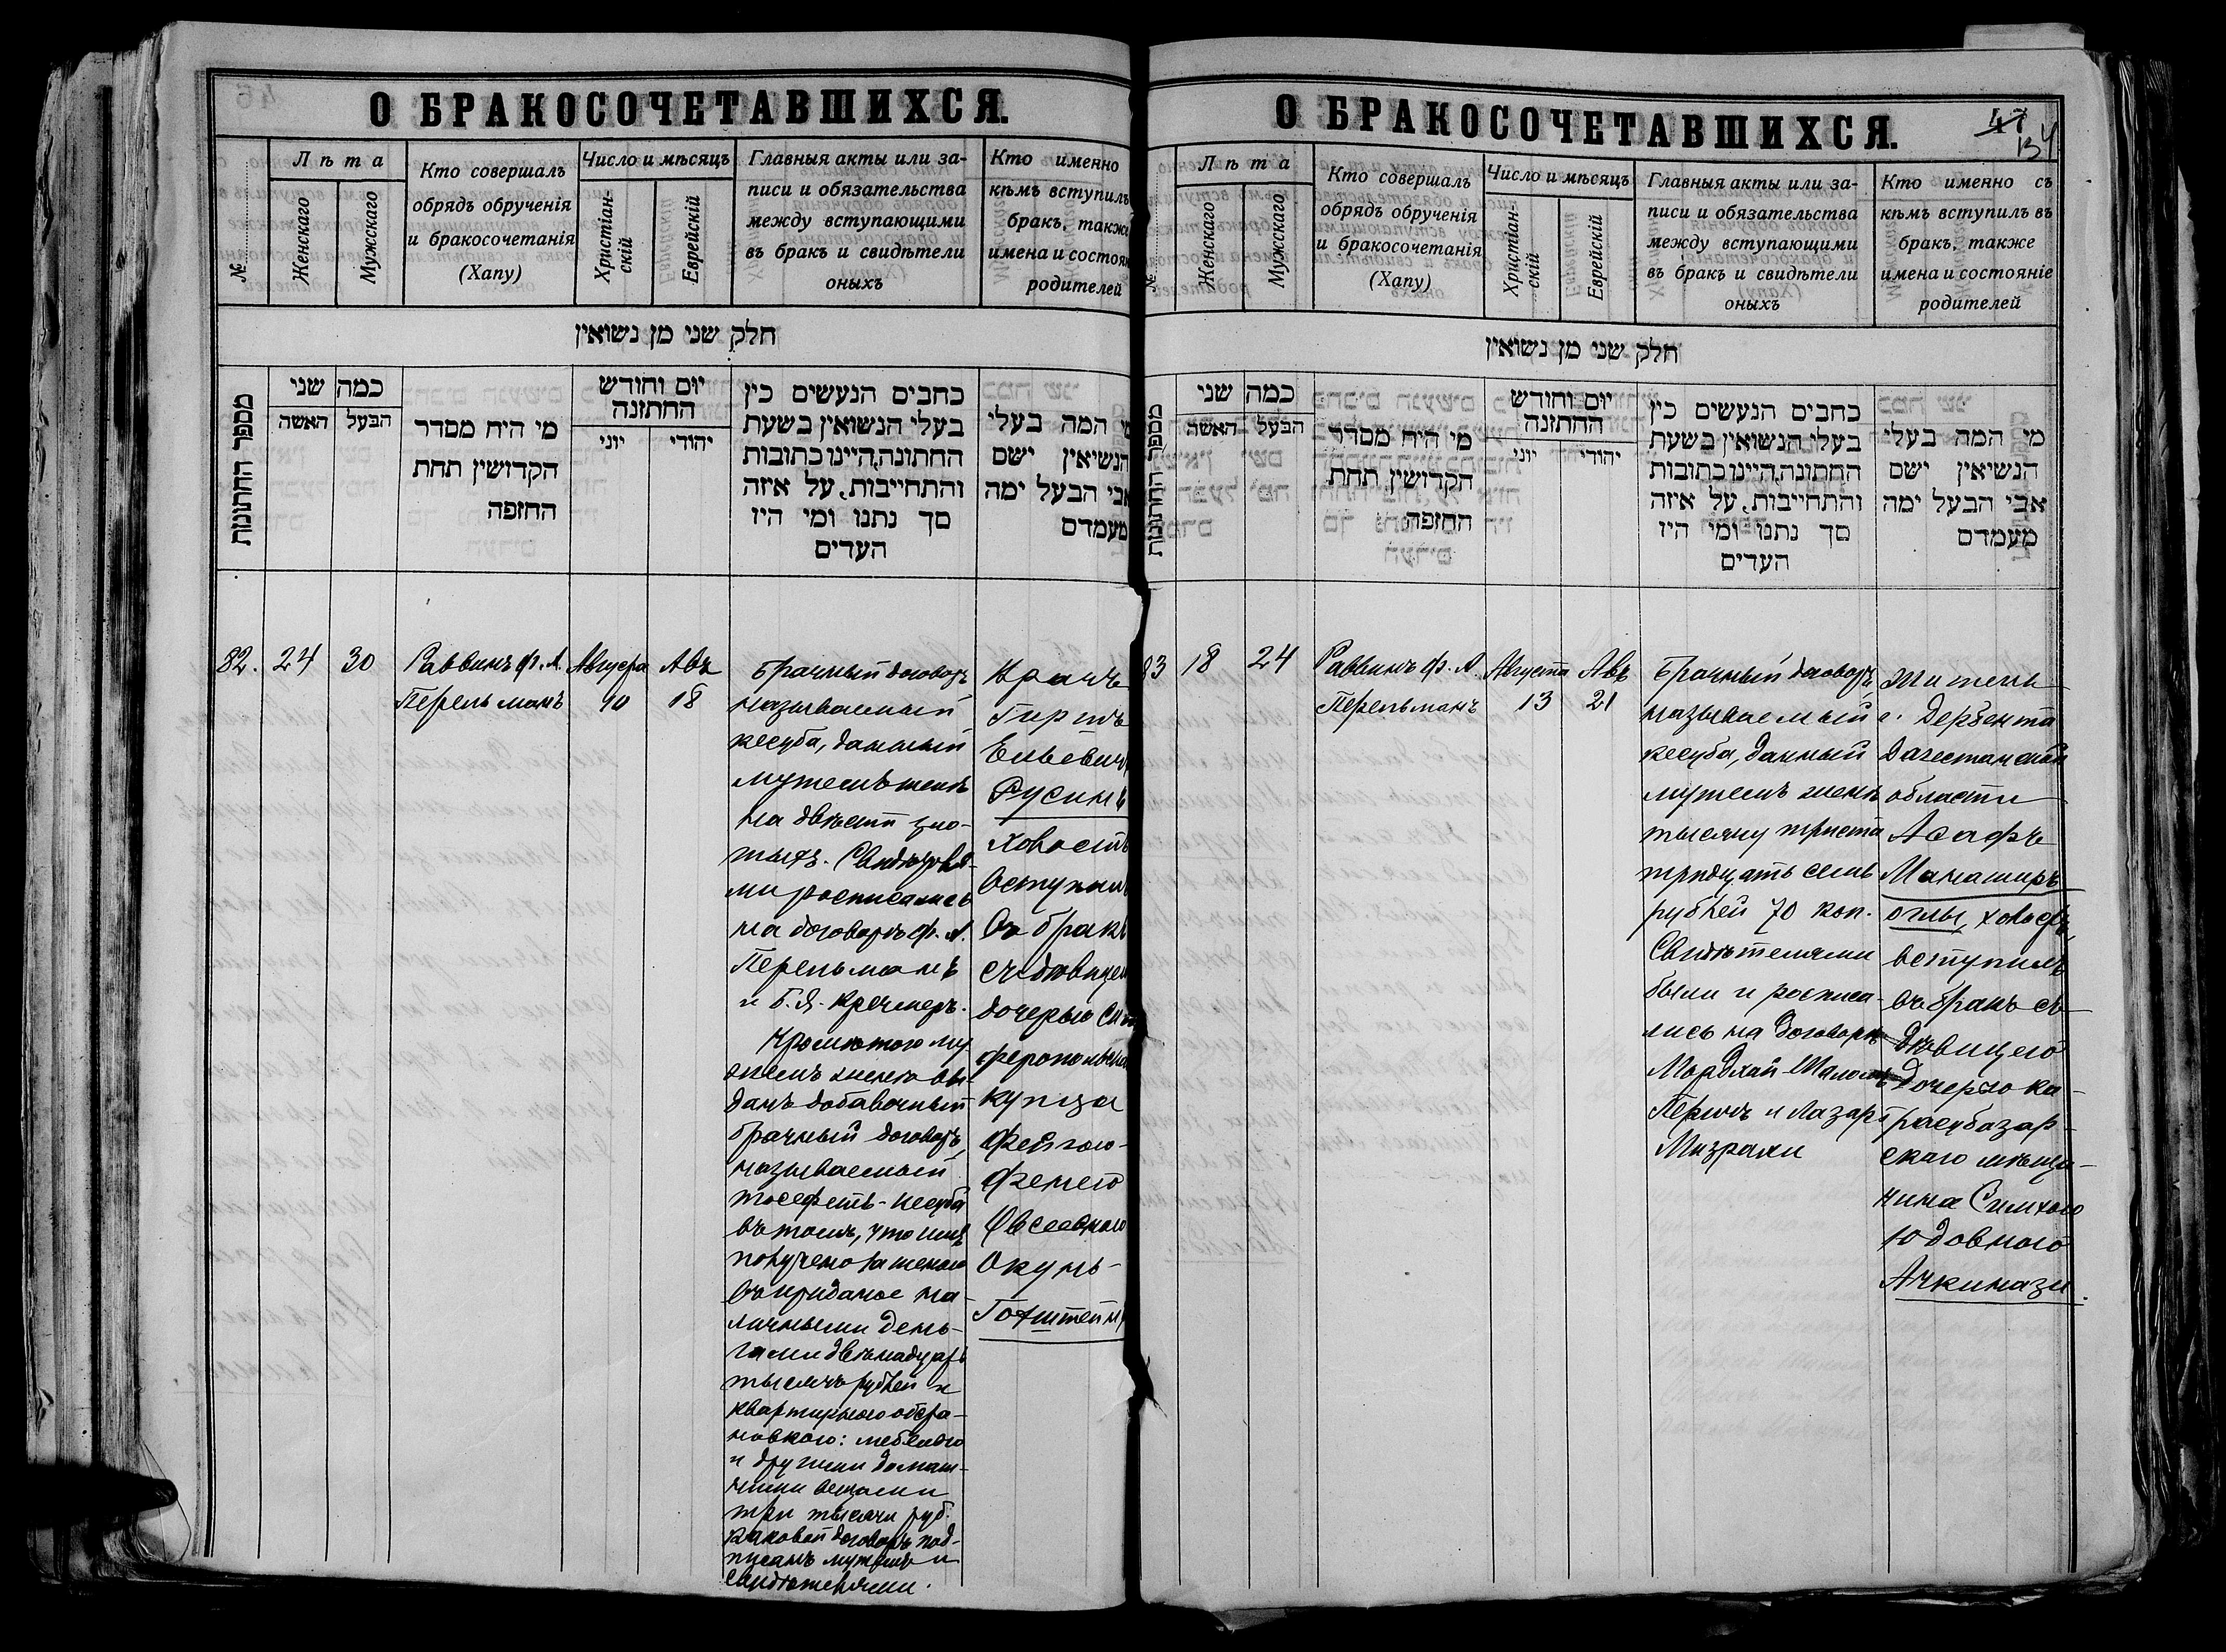 О БРАКОСОЧЕТАВШИХСЯ.
№
Лѣта
Женскаго
Мужскаго
Кто совершалъ
обрядъ обрученія
и бракосочетанія
(Хапу)
Число и мѣсяцъ
Христіан-
скій
Еврейскій
Главныя акты или за-
писи и обязательства
между вступающими
въ бракъ и свидѣтели
оныхъ
Кто именно
кѣмъ вступилъ
бракъ, также
имена и состоян
родителей
חלק שני מן נשואין
מספר החתונות
כמה שני
האשה
הבעל
מי היח מסדר
הקדושין תחת
החזפה
יום וחודש
החתזנה
יוני
יהודי
כחבים הנעשים כין
בעלי הנשואין בשעת
החתונה,היינו כתובות
והתחייבות, על איזה
סך נתנו ומי היז
העדים
המה בעלי
הנשיאין ישם
אבי הבעל ימה
מעמדם
82.
24
30
Раввинъ Ф. А.
Перельманъ
Августа
10
Авъ
18
Брачный договоръ
называемый
кесуба, данный
мужемъ женѣ
на двѣсти зло-
тыхъ. Свидѣтеля-
ми росписались
на договорѣ Ф. А.
Перельманъ
и Б. Я. Кречмеръ.
Кромѣ того му-
жемъ женѣ вы-
данъ добавочный
брачный договоръ,
называемый
тосефетъ-кесуба
въ томъ, что имъ
получено за женою
въ приданое на-
личными день-
гами двѣнадцать
тысячъ рублей и
квартирною обста-
новкою: мебелью
и другими домаш-
ними вещами
три тысячи руб.
каковой договоръ под-
писанъ мужемъ и
свидѣтелями.
Гиршъ
Ельевичъ
Русин
холость
вступилъ
въ бракъ
съ дѣвицею
дочерью Сим
феропольск
купца
Фейгою-
Фенею
Овсеевною
Окунь-
Гохштейнъ
О БРАКОСОЧЕТАВШИХСЯ.
47
134
№
Лѣта
Женскаго
Мужскаго
Кто совершалъ
обрядъ обрученія
и бракосочетанія
(Хапу)
Число и мѣсяцъ
Христіан-
скій
Еврейскій
Главныя акты или за-
писи и обязательства
между вступающими
въ бракъ и свидѣтели
оныхъ
Кто именно съ
кѣмъ вступилъ въ
бракъ, также
имена и состояніе
родителей
חלק שני מן נשואין
מספר החתונות
כמה שני
האשה
הבעל
מי היח מסדר
הקדושין תחת
החזפה
יום וחודש
החתזנה
יוני
יהודי
כחבים הנעשים כין
בעלי הנשואין בשעת
החתונה,היינו כתובות
והתחייבות, על איזה
סך נתנו ומי היז
העדים
מי המה בעלי
הנשיאין ישם
אבי הבעל ימה
מעמדם
83
18
24
Раввинъ Ф. А.
Перельманъ
Августа
13
Авъ
21
Брачный договоръ,
называемый
кесуба, данный
мужемъ женѣ
тысячу триста
тридцать семь
рублей 70 коп.
Свидѣтелями
были и росписа-
лись на договорѣ
Мордхай-Шаломъ
Перичъ и Лазарь
Мизрахи
Житель
г. Дербента
Дагестанской
области
Асафъ
Манаширъ
оглы, холостъ,
вступилъ
въ бракъ съ
дѣвицею
дочерью ка-
расубазар-
скаго мѣща-
нина Симхою
Юдовною
Ачкинази.